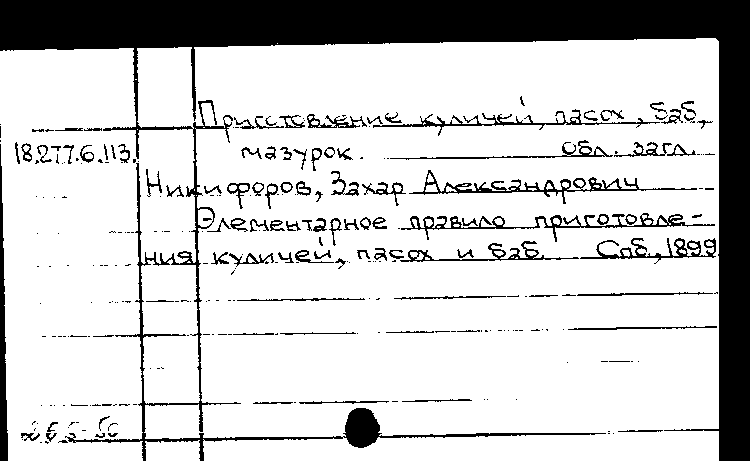 Приготовление куличей, пасох, баб,
18.277.6.113. мазурок. Обл. загл.
Никифоров, Захар Александрович
Элементарное правило приготовле-
ния куличей, пасох и баб. Спб., 1899